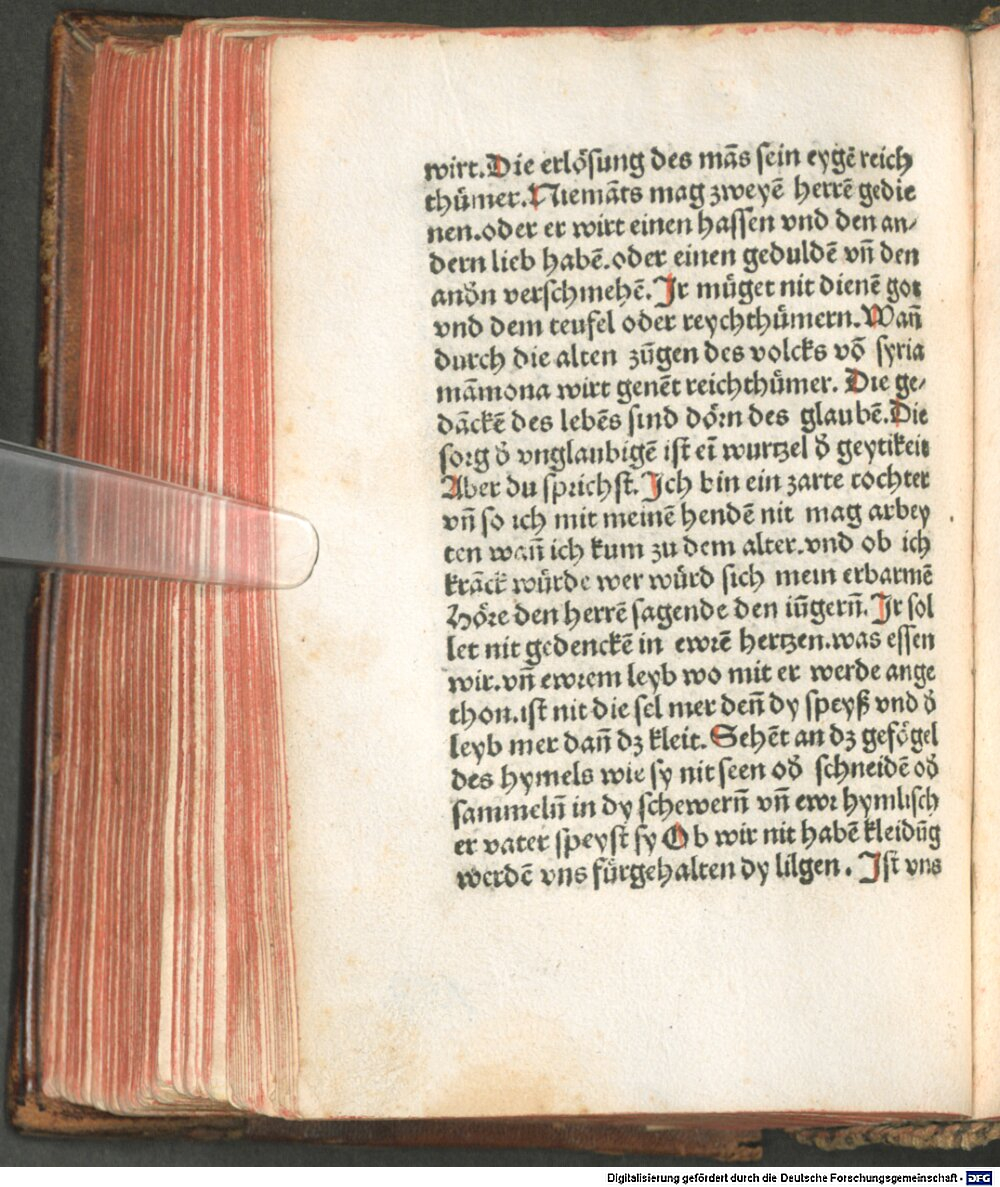 wirt. Die erlösung des mãs sein eygẽ reich
thümer. Niemãts mag zweyẽ herrẽ gedie
nen. oder er wirt einen hassen vnd den an⸗
dern lieb habẽ. oder einen geduldẽ vñ den
andˀn verschmehẽ. Jr müget nit dienẽ got
vnd dem teufel oder reychthümern. Wañ
durch die alten zũgen des volcks võ syria
mãmona wirt genẽt reichthümer. Die ge⸗
dãckẽ des lebẽs sind dörn des glaubẽ. Die
sorg dˀ vnglaubigẽ ist eĩ wurtzel dˀ geytikeit
Aber du sprichst. Jch bin ein zarte tochter
vñ so ich mit meinẽ hendẽ nit mag arbey
ten wañ ich kum zu dem alter. vnd ob ich
krãck würde wer würd sich mein erbarmẽ
Höre den herrẽ sagende den iũgerñ. Jr sol
let nit gedenckẽ in ewrẽ hertzen. was essen
wir. vñ ewrem leyb wo mit er werde ange
thon. ist nit die sel mer deñ dy speyß vnd dˀ
leyb mer dañ dz kleit. Sehẽt an dz gefögel
des hymels wie sy nit seen odˀ schneidẽ odˀ
sammelñ in dy schewerñ vñ ewr hymlisch
er vater speyst sy Ob wir nit habẽ kleidũg
werdẽ vns fürgehalten dy lilgen. Jst vns
Digitalisierung gefördert durch die Deutsche Forschungsgemeinschaft - DFG